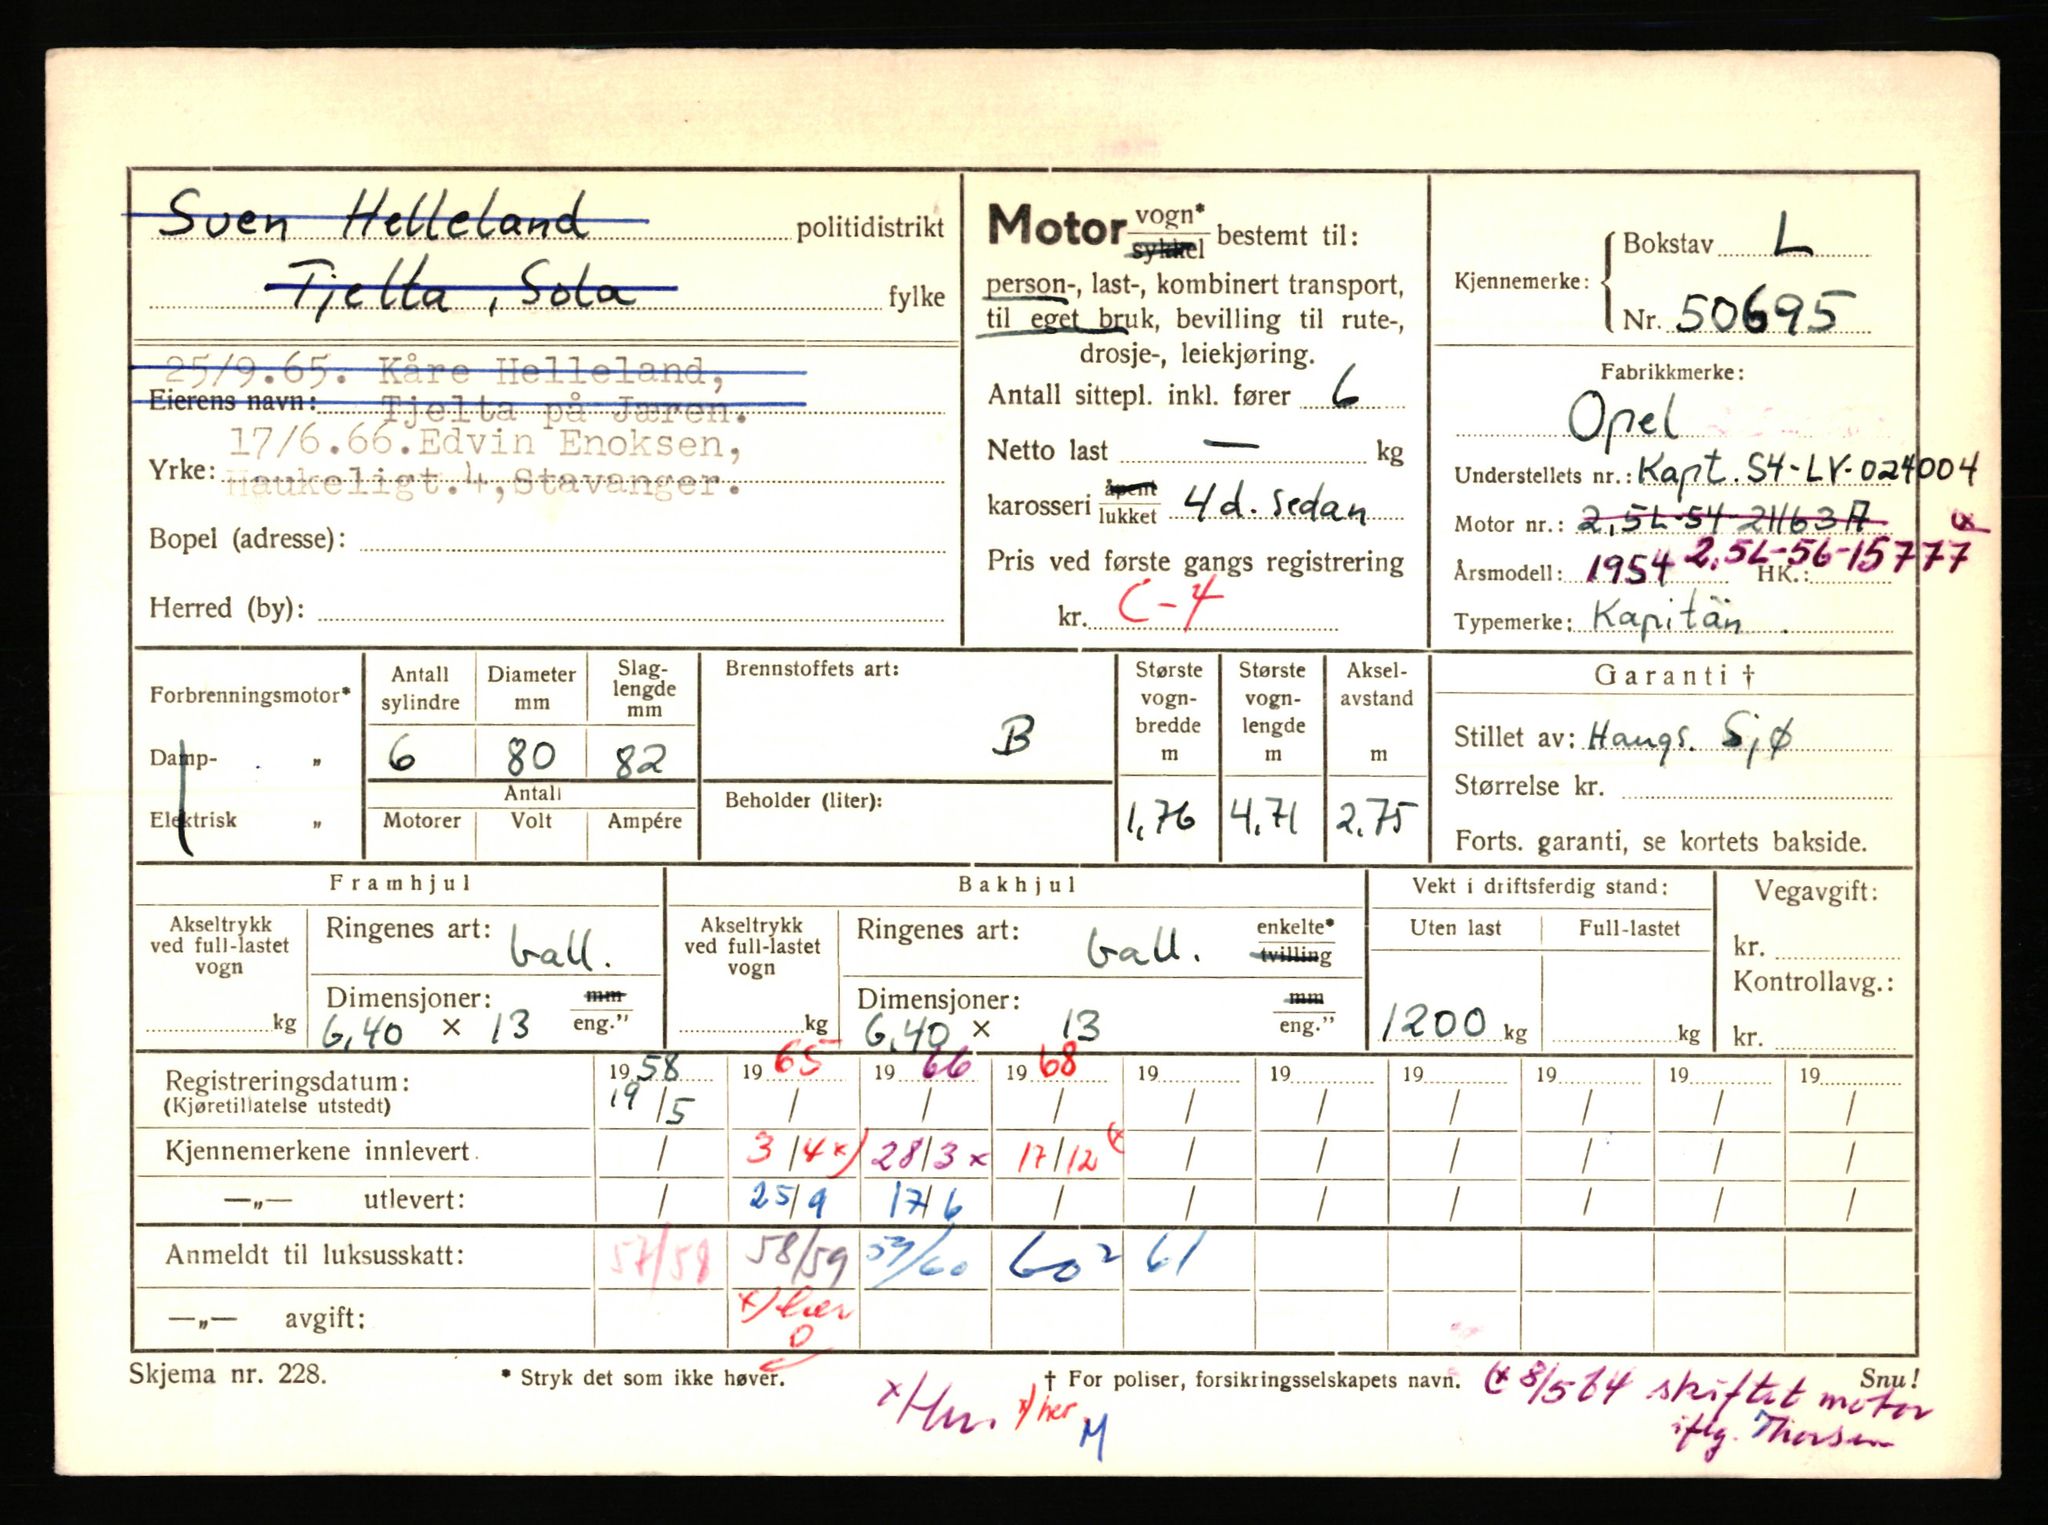 Sven Helleland politidistrikt
Tjelta, Sola fylke
25/9.65. Kåre Helleland,
Eierens navn: Tjelta på Jæren.
17/6.66. Edvin Enoksen,
Yrke: Haukeligt.4, Stavanger.
Bopel (adresse):
Herred (by):
Motor vogn* sykkel bestemt til:
person-, last-, kombinert transport,
til eget bruk, bevilling til rute-,
drosje-, leiekjøring.
Antall sittepl. inkl. fører 6
Netto last — kg
karosseri åpent lukket 4 d. sedan
Pris ved første gangs registrering
kr. C-4
Kjennemerke: Bokstav L
Nr. 50695
Fabrikkmerke:
Opel
Understellets nr.: Kapt. S4-LV-024004
Motor nr.: 2,5L-54-21163A (x
2,5L-56-15777
Årsmodell: 1954 HK.:
Typemerke: Kapitän
Forbrenningsmotor*
Damp- „
Elektrisk „
Antall sylindre 6
Diameter mm 80
Slaglengde mm 82
Antall
Motorer Volt Ampére
Brennstoffets art: B
Beholder (liter):
Største vognbredde m 1,76
Største vognlengde m 4,71
Akselavstand m 2,75
Garanti †
Stillet av: Haugs. Sjø
Størrelse kr.
Forts. garanti, se kortets bakside.
Framhjul
Akseltrykk ved full-lastet vogn kg
Ringenes art: ball.
Dimensjoner: mm eng.”
6,40 x 13
Bakhjul
Akseltrykk ved full-lastet vogn kg
Ringenes art: ball. enkelte* tvilling
Dimensjoner: mm eng.”
6,40 x 13
Vekt i driftsferdig stand:
Uten last Full-lastet
1200 kg kg
Vegavgift:
kr.
Kontrollavg.:
kr.
Registreringsdatum: 1958 1965 1966 1968 19 19 19 19 19 19
(Kjøretillatelse utstedt) 19/5 / / / / / / / / /
Kjennemerkene innlevert / 3/4 x) 28/3 x 17/12 (x / / / / / /
—„— utlevert: / 25/9 17/6 / / / / / / /
Anmeldt til luksusskatt: 57/58 58/59 59/60 60² 61
—„— avgift: x) her
0
Skjema nr. 228. * Stryk det som ikke høver. † For poliser, forsikringsselskapets navn. Snu!
(x 8/5 64 skiftet motor
iflg. Thorsen
x) her
M